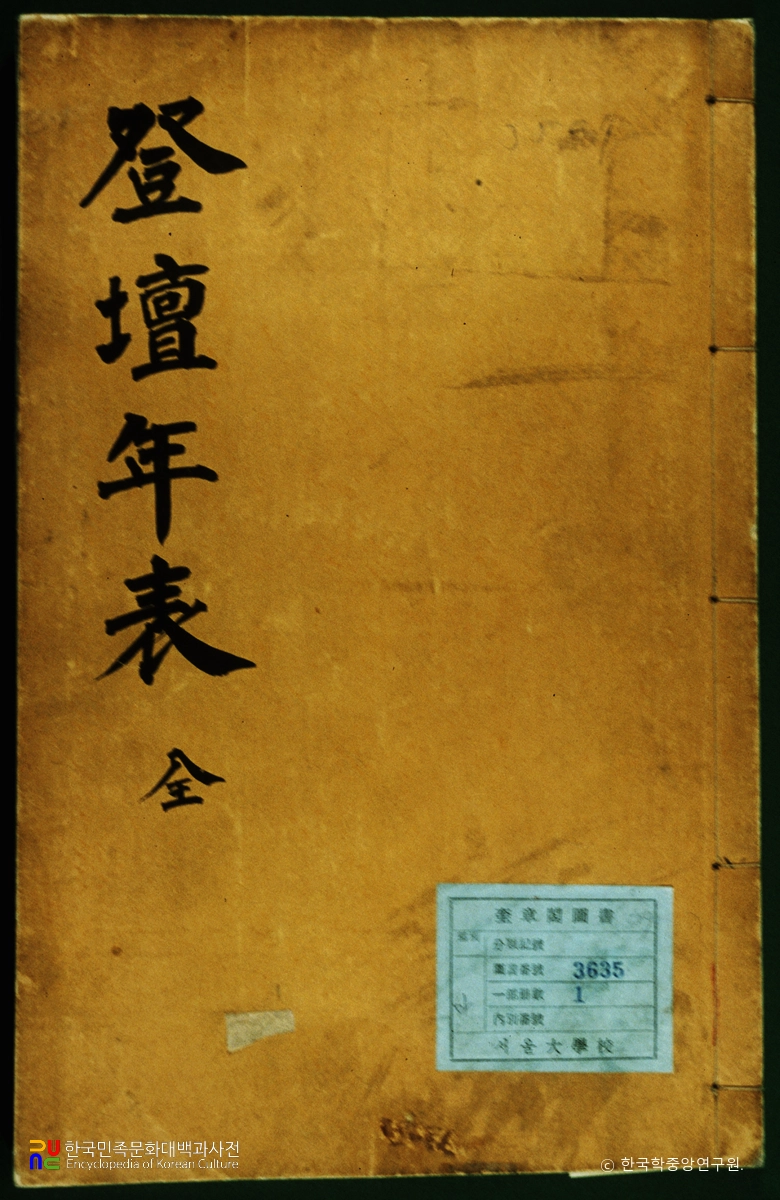 登壇年表 全
奎章閣圖書
分類記號
圖書番號 3635
一部冊數 1
內別番號
서울大學校
한국민족문화대백과사전
Encyclopedia of Korean Culture
© 한국학중앙연구원.